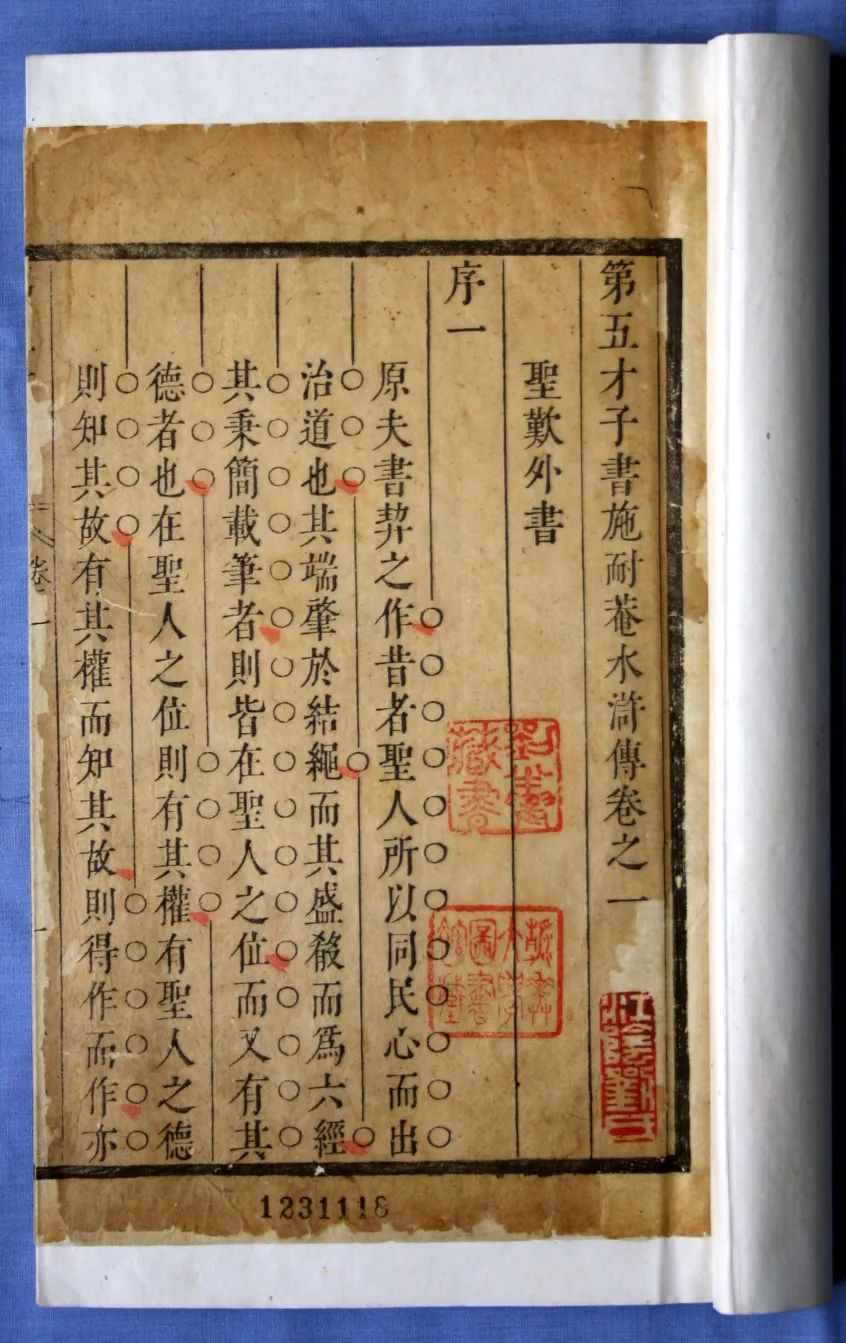 第五才子書施耐菴水滸傳卷之一
聖歎外書
序一
原夫書契之作昔者聖人所以同民心而出
治道也其端肇於結繩而其盛殽而為六經
其秉簡載筆者則皆在聖人之位而又有其
德者也在聖人之位則有其權有聖人之德
則知其故有其權而知其故則得作而作亦
卷一
江陰劉氏
劉半農
藏書
燕京大學
圖書館
1231118